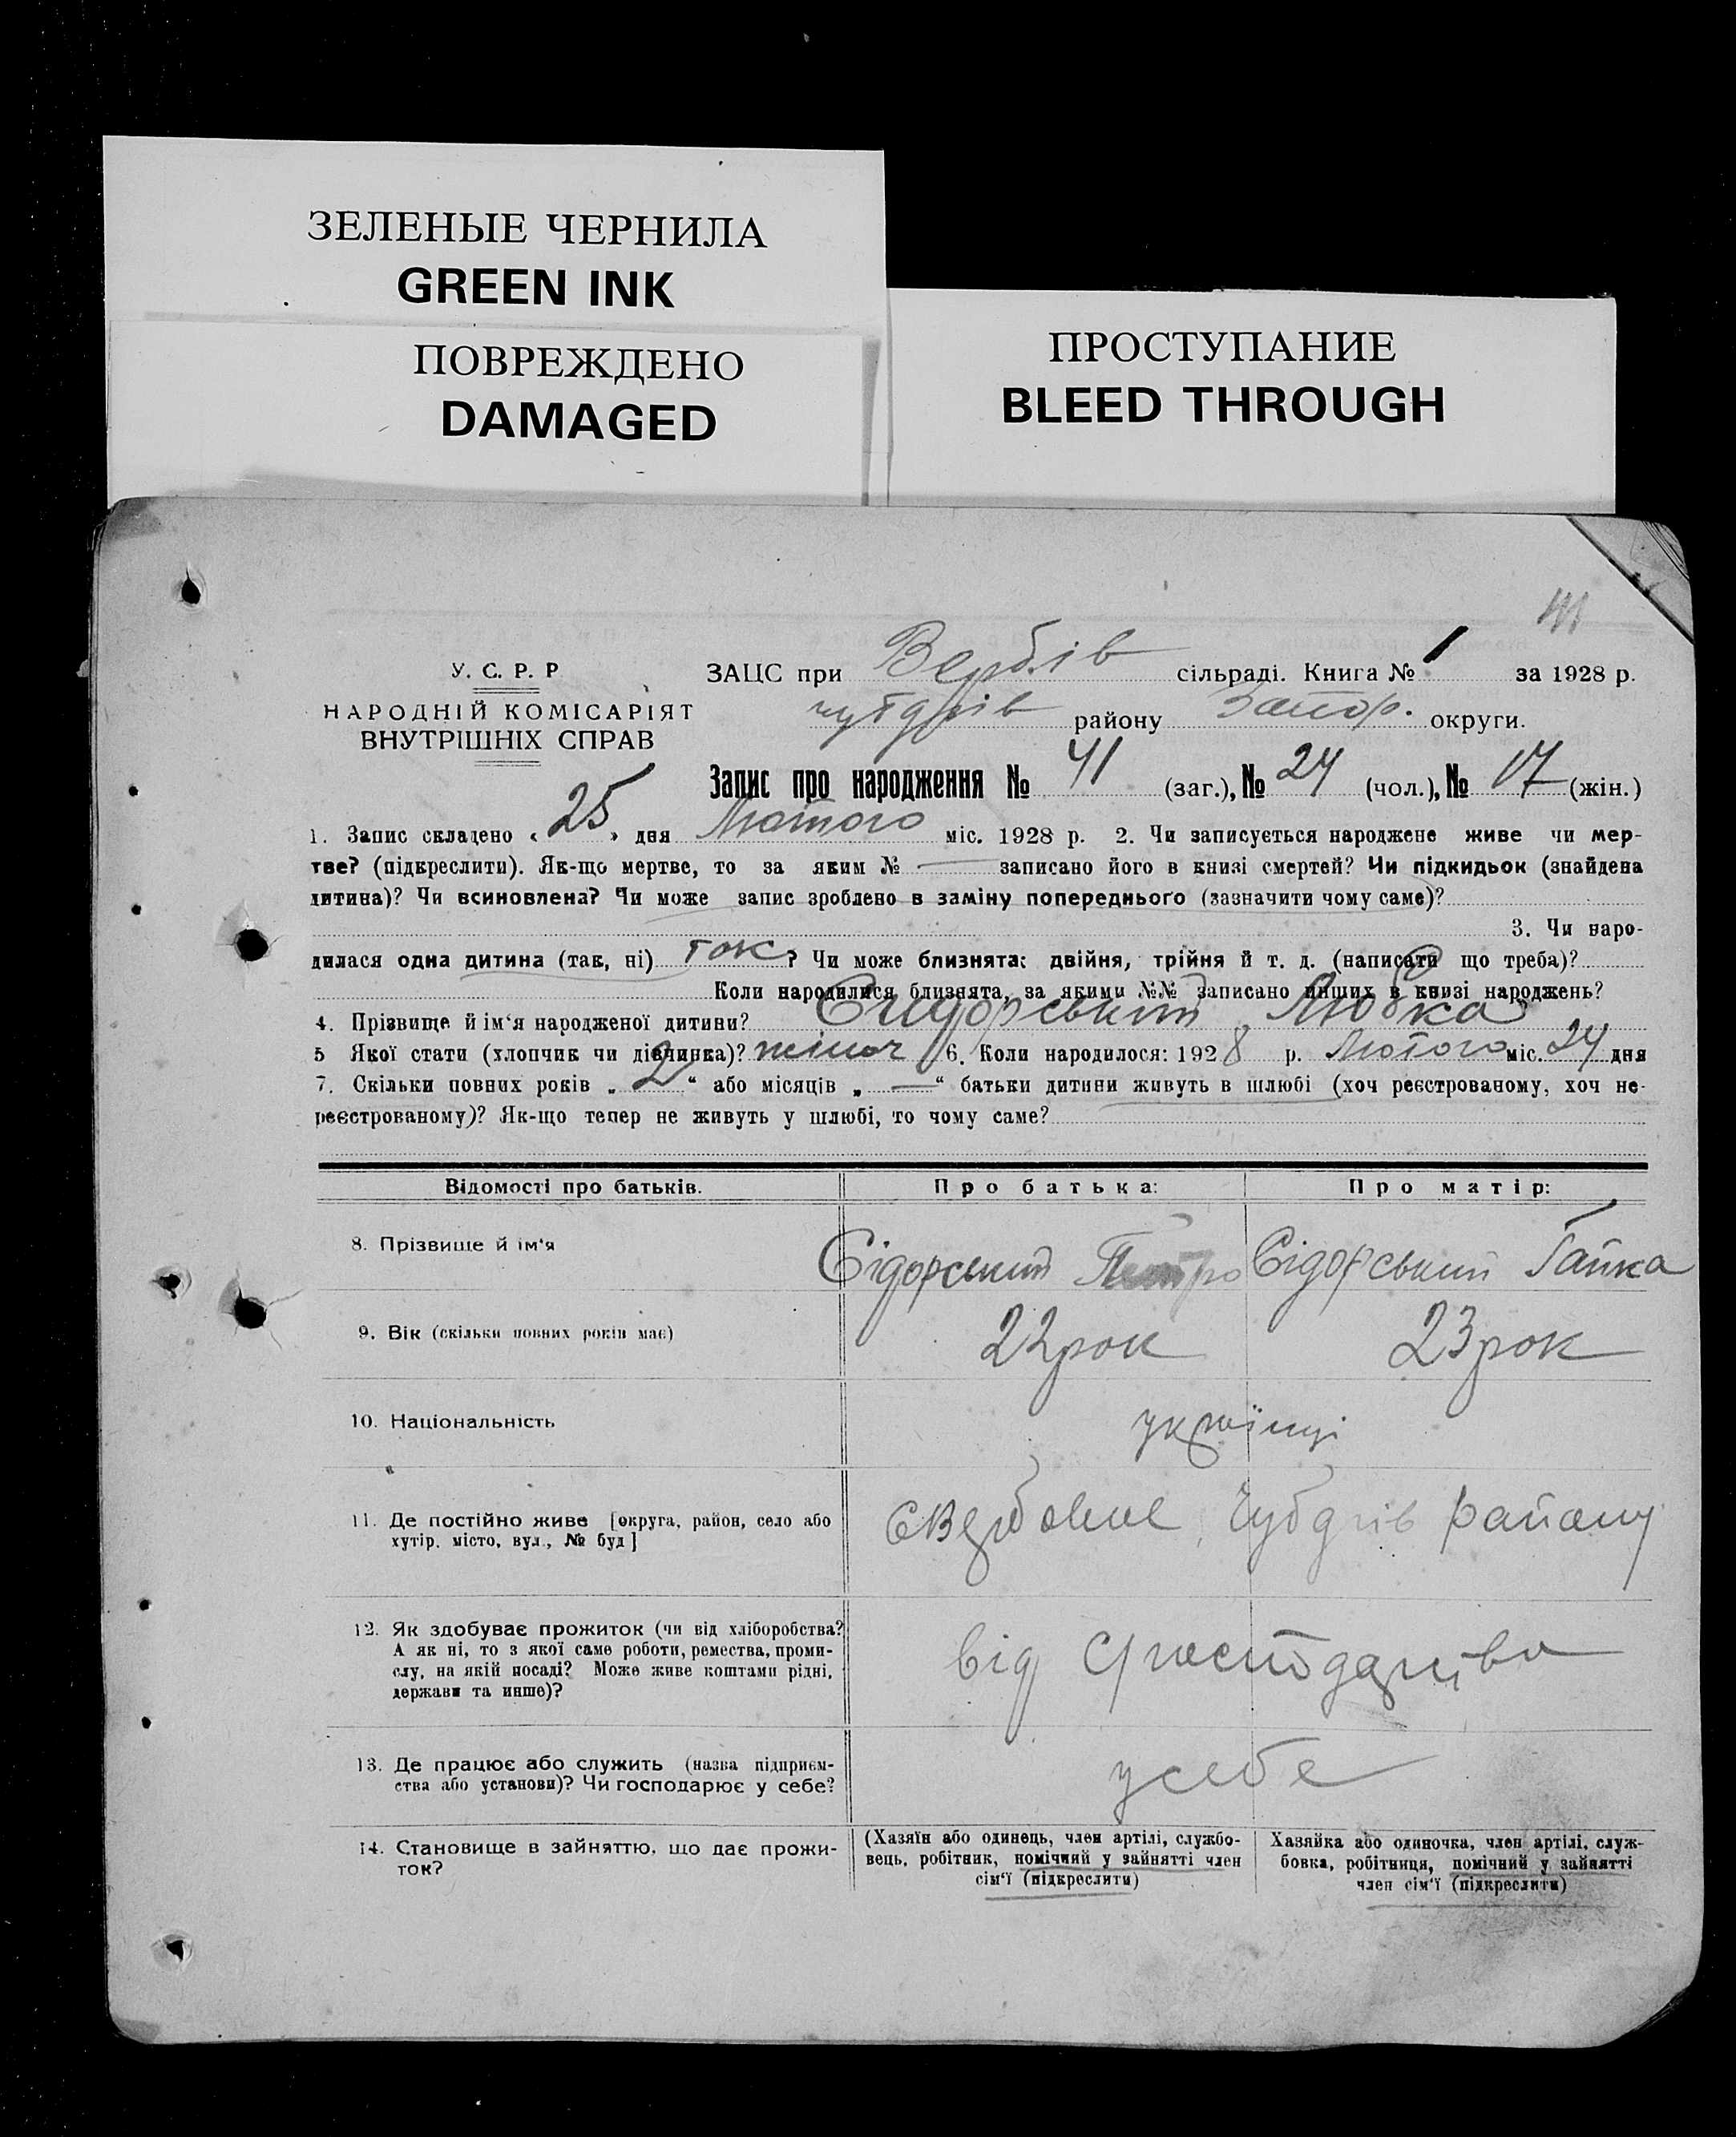 ЗЕЛЕНЫЕ ЧЕРНИЛА
GREEN INK
ПОВРЕЖДЕНО
DAMAGED
ПРОСТУПАНИЕ
BLEED THROUGH
41
У. С. Р. Р
НАРОДНІЙ КОМІСАРІЯТ
ВНУТРІШНІХ СПРАВ
ЗАЦС при Вербів сільраді. Книга № 1 за 1928 р.
району Запор. округи.
Запис про народження № 41 (заг.), № 24 (чол.), № 17 (жін.)
1. Запис складено « 25 » дня Лютого міс. 1928 р. 2. Чи записується народжене живе чи мер-
тве? (підкреслити). Як-що мертве, то за яким № — записано його в книзі смертей? Чи підкидьок (знайдена
дитина)? Чи всиновлена? Чи може запис зроблено в заміну попереднього (зазначити чому саме)?
3. Чи наро-
дилася одна дитина (так, ні) так ? Чи може близнята: двійня, трійня й т. д. (написати що треба)?
Коли народилися близнята, за якими №№ записано инших в книзі народжень?
4. Прізвище й ім'я народженої дитини? Сидорський Любка
5 Якої стати (хлопчик чи дівчинка)? жіноч 6. Коли народилося: 1928 р. Лютого міс. 24 дня
7. Скільки повних років „ 2 “ або місяців „ — “ батьки дитини живуть в шлюбі (хоч реєстрованому, хоч не-
реєстрованому)? Як-що тепер не живуть у шлюбі, то чому саме?
Відомості про батьків. Про батька: Про матір:
8. Прізвище й ім'я Сідорський Петро Сідорський Ганка
9. Вік (скільки повних років має) 22 рок 23 рок
10. Національність українці
11. Де постійно живе [округа, район, село або
хутір, місто, вул., № буд] района
12. Як здобуває прожиток (чи від хліборобства?
А як ні, то з якої саме роботи, ремества, проми-
слу, на якій посаді? Може живе коштами рідні,
держави та инше)? від
13. Де працює або служить (назва підприєм-
ства або установи)? Чи господарює у себе? у себе
14. Становище в зайняттю, що дає прожи-
ток?
(Хазяїн або одинець, член артілі, службо-
вець, робітник, помічний у зайнятті член
сім'ї (підкреслити)
Хазяйка або одиночка, член артілі, служ-
бовка, робітниця, помічний у зайнятті
член сім'ї (підкреслити)